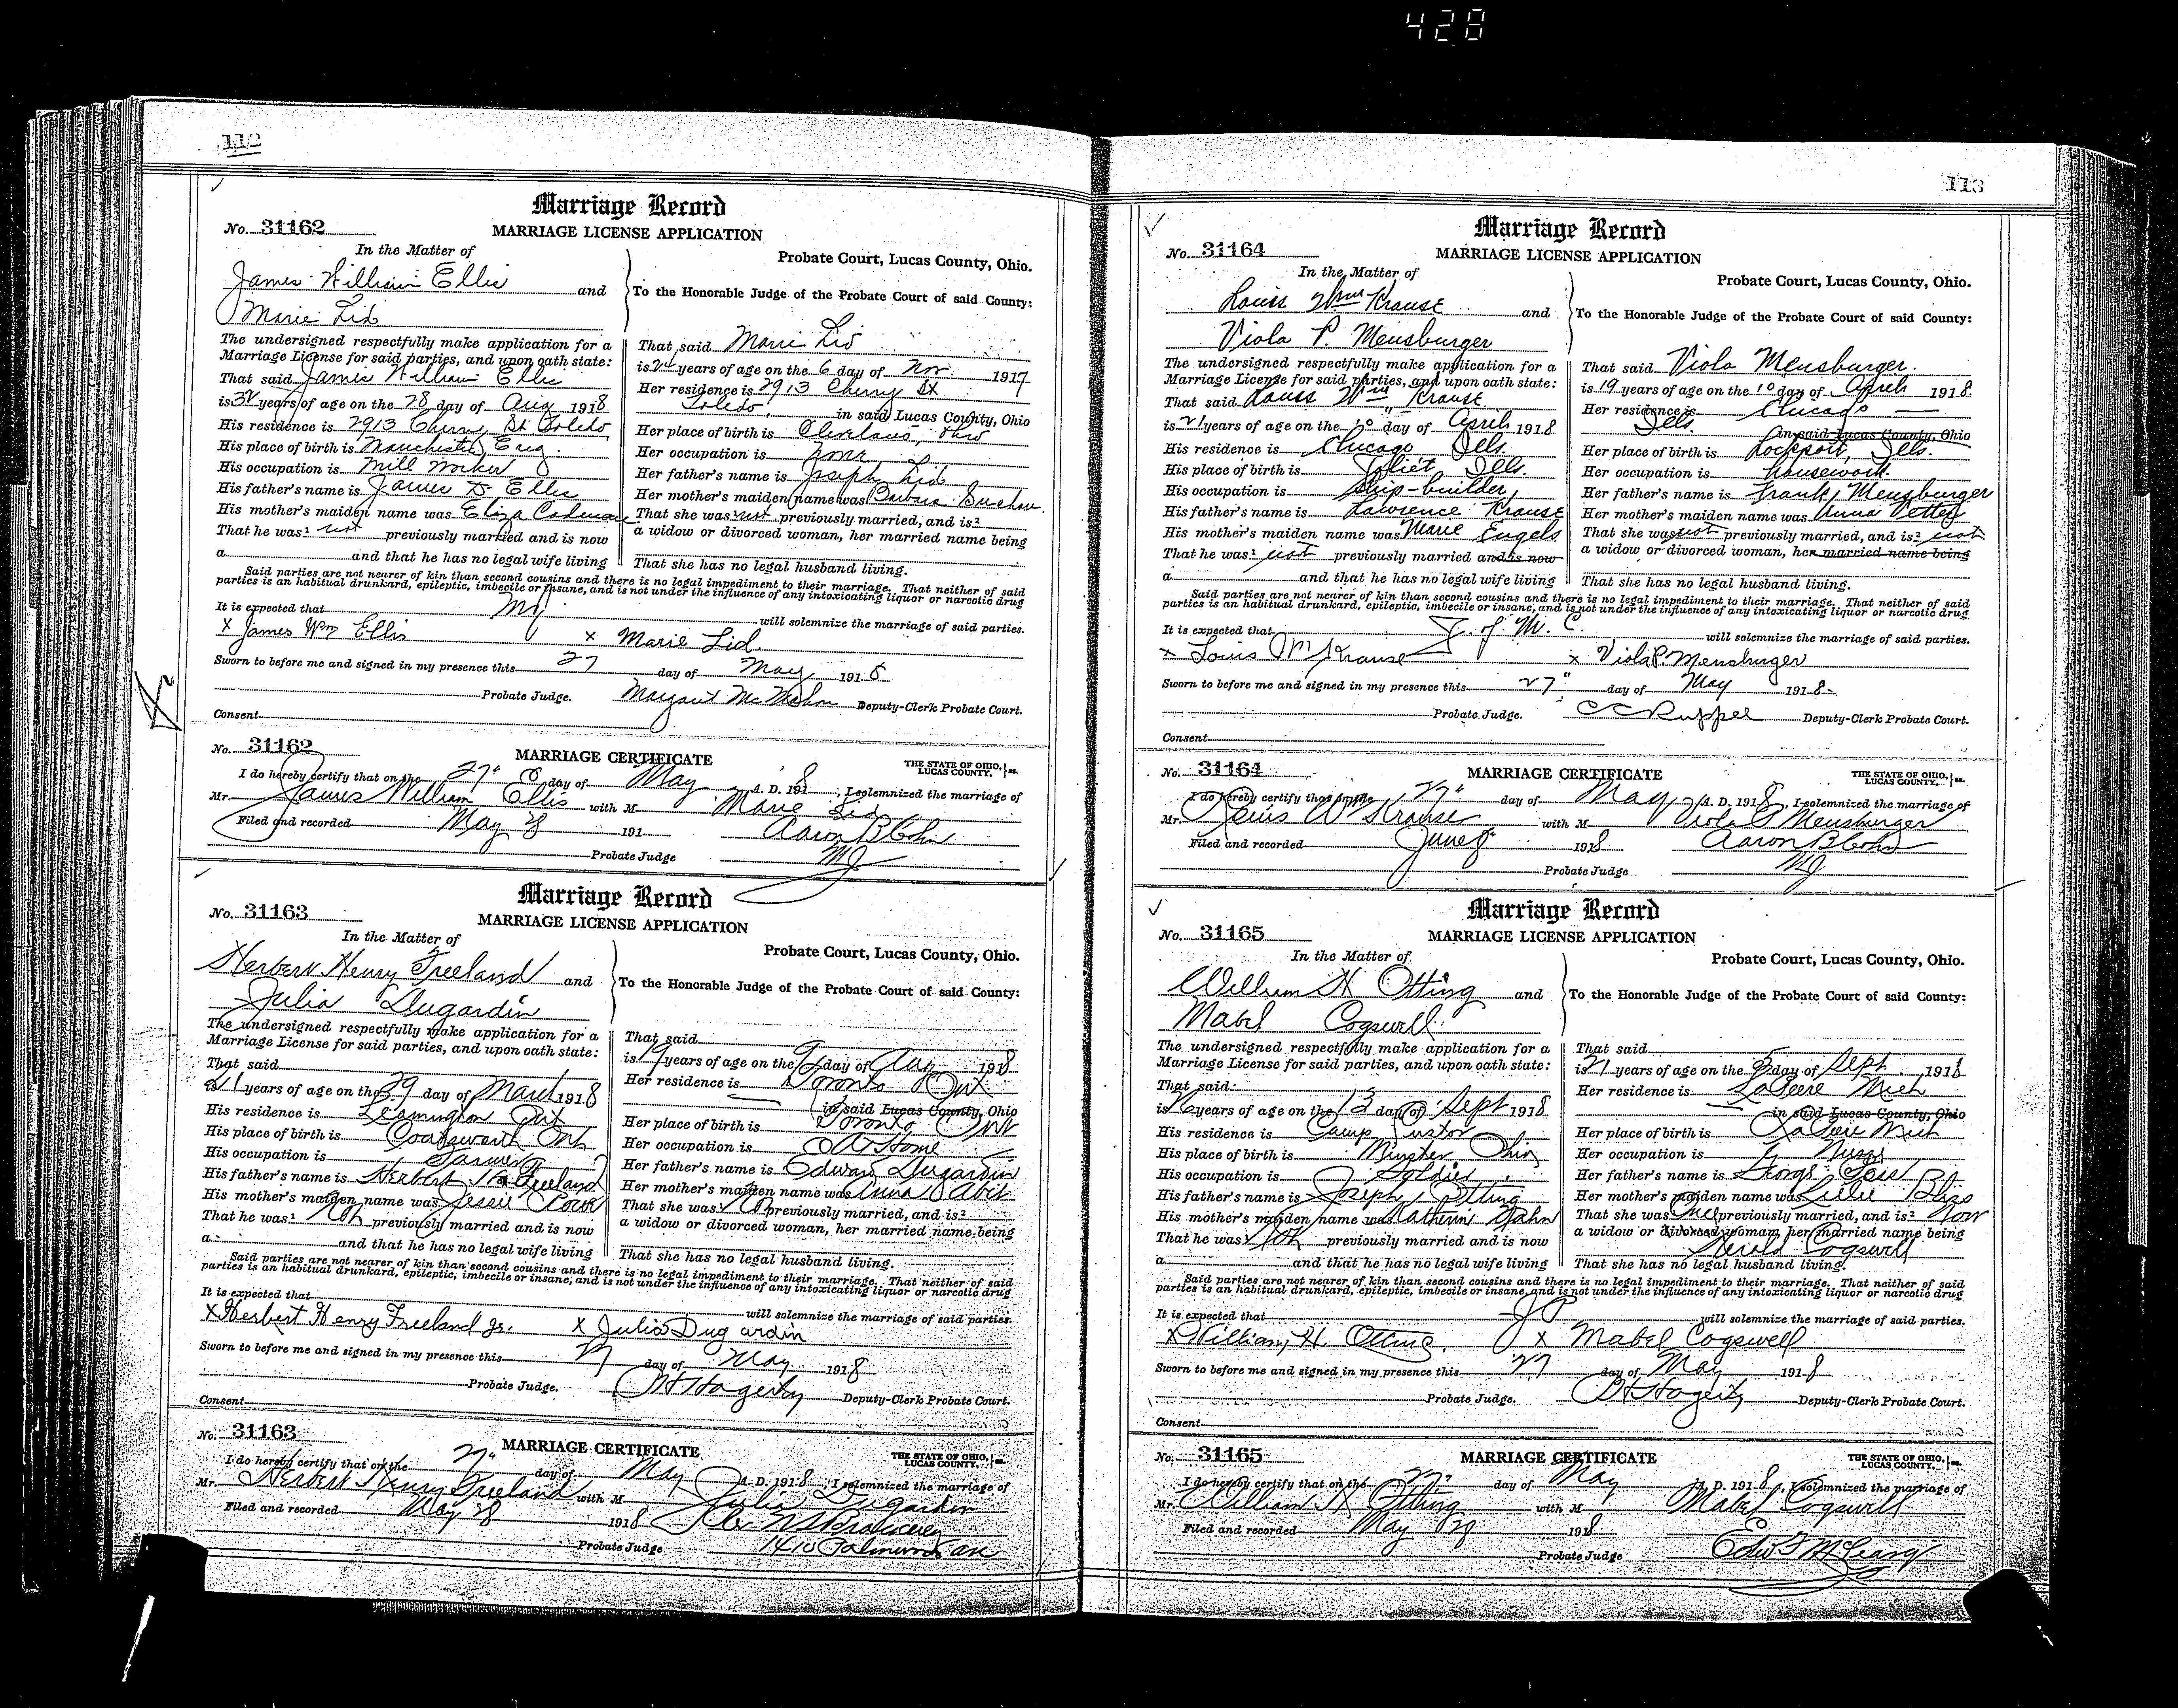 428
112
Marriage Record
No. 31162
MARRIAGE LICENSE APPLICATION
In the Matter of
Probate Court, Lucas County, Ohio.
James William Ellis and
To the Honorable Judge of the Probate Court of said County:
Marie Lid
The undersigned respectfully make application for a
Marriage License for said parties, and upon oath state:
That said James William Ellis
is 32 years of age on the 28 day of Aug 1918
His residence is 2913 Cherry St Toledo
His place of birth is Manchester Eng.
His occupation is Mill Worker
His father's name is James D. Ellis
His mother's maiden name was Eliza
That he was¹ not previously married and is now
a and that he has no legal wife living
That said Marie Lid
is years of age on the 6 day of Nov. 1917
Her residence is 2913 Cherry St
Toledo, in said Lucas County, Ohio
Her place of birth is Cleveland, Ohio
Her occupation is
Her father's name is Joseph Lid
Her mother's maiden name was Barbara
That she was not previously married, and is²
a widow or divorced woman, her married name being
That she has no legal husband living.
Said parties are not nearer of kin than second cousins and there is no legal impediment to their marriage. That neither of said
parties is an habitual drunkard, epileptic, imbecile or insane, and is not under the influence of any intoxicating liquor or narcotic drug
It is expected that MJ will solemnize the marriage of said parties.
X James Wm Ellis x Marie Lid.
Sworn to before me and signed in my presence this 27 day of May 1918
Probate Judge. Margaret Deputy-Clerk Probate Court.
Consent
No. 31162
MARRIAGE CERTIFICATE
THE STATE OF OHIO, LUCAS COUNTY, } ss.
I do hereby certify that on the 27" day of May A. D. 1918, I solemnized the marriage of
Mr. James William Ellis with M Marie Lid
Filed and recorded May 28 191 Aaron B Cohn
Probate Judge MJ
Marriage Record
No. 31163
MARRIAGE LICENSE APPLICATION
In the Matter of
Probate Court, Lucas County, Ohio.
Herbert Henry Freeland and
To the Honorable Judge of the Probate Court of said County:
Julia Dugardin
The undersigned respectfully make application for a
Marriage License for said parties, and upon oath state:
That said
is 21 years of age on the 29 day of March 1918
His residence is Leamington Ont
His place of birth is Coatsworth Ont
His occupation is Farmer
His father's name is Herbert H Freeland
His mother's maiden name was Jessie
That he was¹ Not previously married and is now
a and that he has no legal wife living
That said
is 19 years of age on the day of Aug 1918
Her residence is Toronto Ont
in said Lucas County, Ohio
Her place of birth is Toronto Ont
Her occupation is At Home
Her father's name is Edward Dugardin
Her mother's maiden name was Anna
That she was previously married, and is²
a widow or divorced woman, her married name being
That she has no legal husband living.
Said parties are not nearer of kin than second cousins and there is no legal impediment to their marriage. That neither of said
parties is an habitual drunkard, epileptic, imbecile or insane, and is not under the influence of any intoxicating liquor or narcotic drug
It is expected that will solemnize the marriage of said parties.
X Herbert Henry Freeland Jr. X Julia Dugardin
Sworn to before me and signed in my presence this 27 day of May 1918
Probate Judge. Hagerty Deputy-Clerk Probate Court.
Consent
No. 31163
MARRIAGE CERTIFICATE
THE STATE OF OHIO, LUCAS COUNTY, } ss.
I do hereby certify that on the 27" day of May A. D. 1918, I solemnized the marriage of
Mr. Herbert Henry Freeland with M Julia Dugardin
Filed and recorded May 28 1918 Rev
Probate Judge 1410
113
Marriage Record
No. 31164
MARRIAGE LICENSE APPLICATION
In the Matter of
Probate Court, Lucas County, Ohio.
Louis Wm Krause and
To the Honorable Judge of the Probate Court of said County:
Viola P. Mensburger
The undersigned respectfully make application for a
Marriage License for said parties, and upon oath state:
That said Louis Wm Krause
is 21 years of age on the 20 day of April 1918
His residence is Chicago Ills.
His place of birth is Joliet, Ills.
His occupation is Ship-builder,
His father's name is Lawrence Krause
His mother's maiden name was Marie Engels
That he was¹ not previously married and is now
a and that he has no legal wife living
That said Viola Mensburger.
is 19 years of age on the 10 day of April 1918
Her residence is Chicago
Ills. in said Lucas County, Ohio
Her place of birth is Lockport, Ills.
Her occupation is housework.
Her father's name is Frank Mensburger
Her mother's maiden name was Anna
That she was not previously married, and is² not
a widow or divorced woman, her married name being
That she has no legal husband living.
Said parties are not nearer of kin than second cousins and there is no legal impediment to their marriage. That neither of said
parties is an habitual drunkard, epileptic, imbecile or insane, and is not under the influence of any intoxicating liquor or narcotic drug
It is expected that J. of M. C. will solemnize the marriage of said parties.
x Louis Wm Krause x Viola P. Mensburger
Sworn to before me and signed in my presence this 27" day of May 1918
Probate Judge. C C Ruppel Deputy-Clerk Probate Court.
Consent
No. 31164
MARRIAGE CERTIFICATE
THE STATE OF OHIO, LUCAS COUNTY, } ss.
I do hereby certify that on the 27" day of May A. D. 1918, I solemnized the marriage of
Mr. Louis W Krause with M Viola P Mensburger
Filed and recorded June 8 1918 Aaron B Cohn
Probate Judge MJ
Marriage Record
No. 31165
MARRIAGE LICENSE APPLICATION
In the Matter of
Probate Court, Lucas County, Ohio.
William H Otting and
To the Honorable Judge of the Probate Court of said County:
Mabel Cogswell
The undersigned respectfully make application for a
Marriage License for said parties, and upon oath state:
That said
is 26 years of age on the 13 day of Sept 1918
His residence is Camp Custer
His place of birth is Minster Ohio
His occupation is Soldier
His father's name is Joseph Otting
His mother's maiden name was Katherine
That he was¹ Not previously married and is now
a and that he has no legal wife living
That said
is 21 years of age on the 5 day of Sept 191
Her residence is LaPeere Mich
in said Lucas County, Ohio
Her place of birth is LaPeere Mich
Her occupation is Nurse
Her father's name is George
Her mother's maiden name was Lillie
That she was Once previously married, and is² Now
a widow or divorced woman, her married name being
Herald Cogswell
That she has no legal husband living.
Said parties are not nearer of kin than second cousins and there is no legal impediment to their marriage. That neither of said
parties is an habitual drunkard, epileptic, imbecile or insane, and is not under the influence of any intoxicating liquor or narcotic drug
It is expected that J P will solemnize the marriage of said parties.
X William H. Otting. X Mabel Cogswell
Sworn to before me and signed in my presence this 27 day of May 1918
Probate Judge. Hagerty Deputy-Clerk Probate Court.
Consent
No. 31165
MARRIAGE CERTIFICATE
THE STATE OF OHIO, LUCAS COUNTY, } ss.
I do hereby certify that on the 27" day of May A. D. 1918, I solemnized the marriage of
Mr. William H Otting with M Mabel Cogswell
Filed and recorded May 1918
Probate Judge